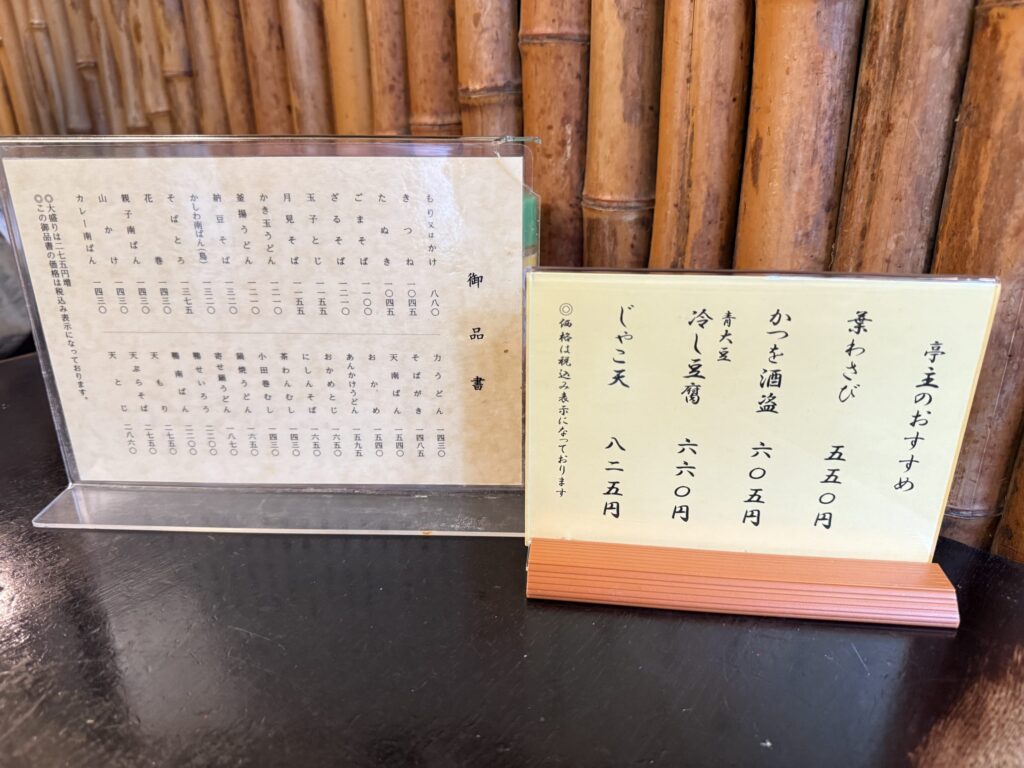 御品書
もり又はかけ 八八〇
きつね 一〇四五
たぬき 一〇四五
ごまそば 一一〇〇
ざるそば 一二一〇
玉子とじ 一一五五
月見そば 一一五五
かき玉うどん 一二一〇
釜揚うどん 一二一〇
納豆そば 一三二〇
かしわ南ばん(鳥) 一三二〇
そばとろ 一三七五
花巻 一四三〇
親子南ばん 一四三〇
山かけ 一四三〇
カレー南ばん 一四三〇
力うどん 一四三〇
そばがき 一四八五
天南ばん 一五四〇
おかめ 一五四〇
あんかけうどん 一五九五
おかめとじ 一六五〇
にしんそば 一六五〇
茶わんむし 一四三〇
小田巻むし 一四三〇
鍋焼うどん 一六五〇
寄せ鍋うどん 一八七〇
鴨せいろう 二二〇〇
鴨南ばん 二二〇〇
天もり 二七五〇
天ぷらそば 二七五〇
天とじ 二八六〇
◎大盛りは二七五円増
◎この御品書の価格は税込み表示になっております。
亭主のおすすめ
葉わさび 五五〇円
かつを酒盗 六〇五円
青大豆
冷し豆腐 六六〇円
じゃこ天 八二五円
◎価格は税込み表示になっております